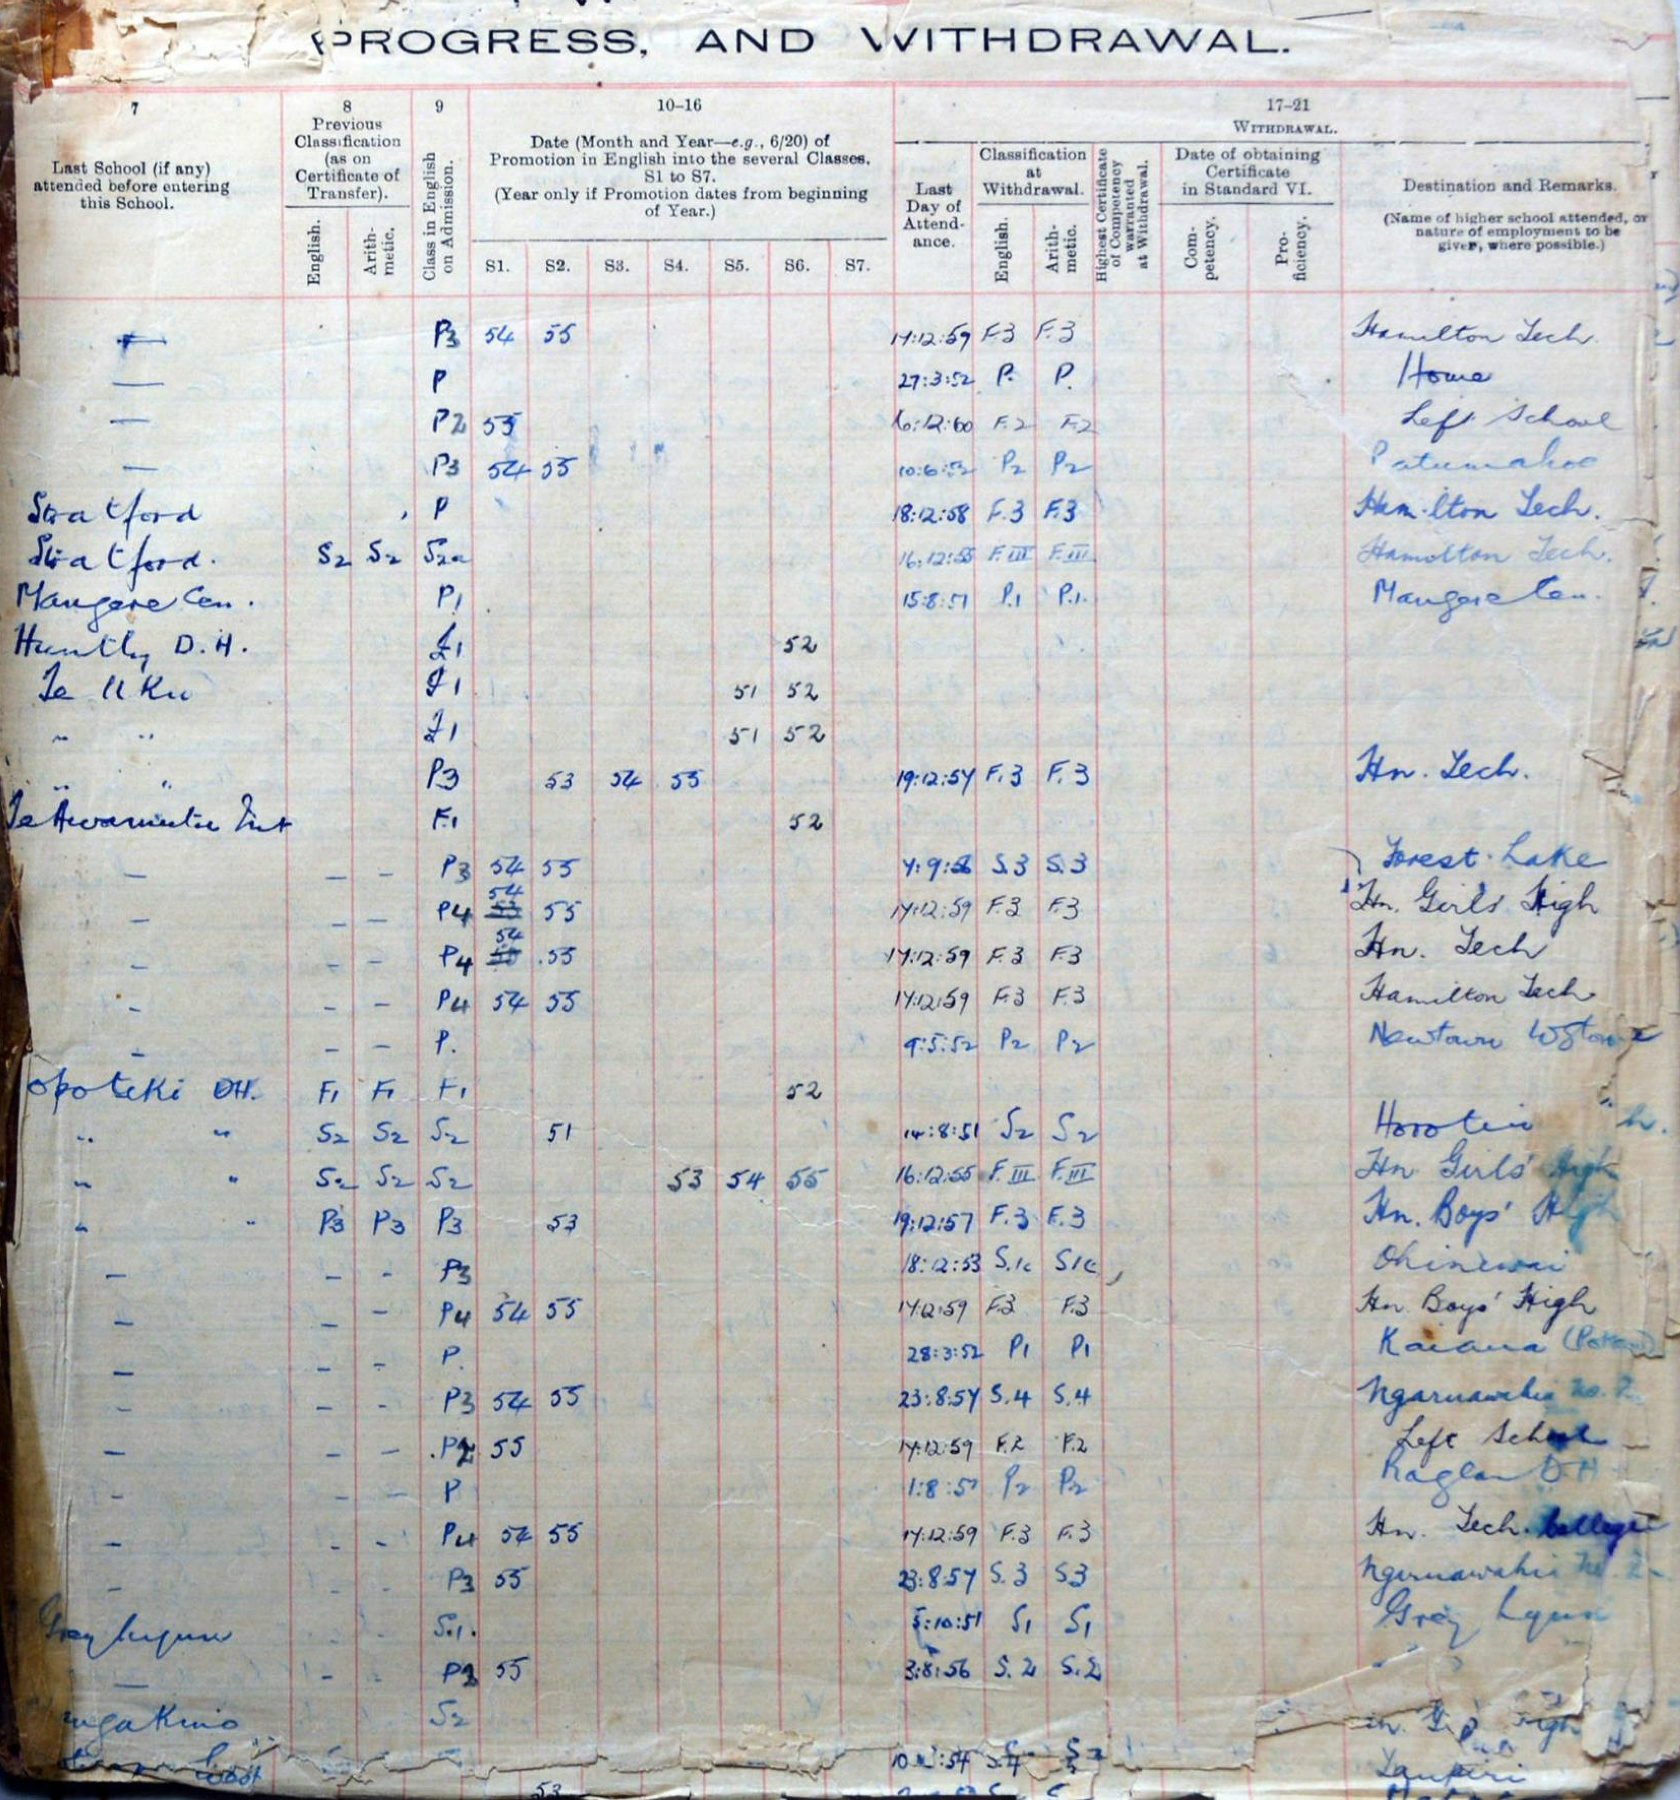 PROGRESS, AND WITHDRAWAL.
7 8 9 10–16 17–21
Last School (if any) attended before entering this School.
Previous Classification (as on Certificate of Transfer).
English. Arith-metic.
Class in English on Admission.
Date (Month and Year—e.g., 6/20) of Promotion in English into the several Classes, S1 to S7.
(Year only if Promotion dates from beginning of Year.)
S1. S2. S3. S4. S5. S6. S7.
WITHDRAWAL.
Last Day of Attend-ance.
Classification at Withdrawal.
English. Arith-metic.
Highest Certificate of Competency warranted at Withdrawal.
Date of obtaining Certificate in Standard VI.
Com-petency. Pro-ficiency.
Destination and Remarks.
(Name of higher school attended, or nature of employment to be given, where possible.)
— P3 54 55 17:12:59 F.3 F.3 Hamilton Tech.
— P 27:3:52 P. P. Home
— P2 55 16:12:60 F.2 F.2 Left School
— P3 54 55 10:6:52 P2 P2 Patumahoe
Stratford P 18:12:58 F.3 F.3 Hamilton Tech.
Stratford. S2 S2 S2a 16:12:55 F.III F.III Hamilton Tech.
Mangere Cen. P1 15:8:51 P.1 P.1. Mangere Cen.
Huntly D.H. F1 52
Te Uku F1 51 52
" " F1 51 52
" " P3 53 54 55 19:12:57 F.3 F.3 Hn. Tech.
Te Awamutu Int F.1 52
— — – P3 54 55 7:9:56 S.3 S.3 Forest Lake
— — — P4 54 53 55 17:12:59 F.3 F.3 Hn. Girls' High
— – — P4 54 55 17:12:59 F.3 F.3 Hn. Tech
– – – P4 54 55 17:12:59 F.3 F.3 Hamilton Tech.
– – – P. 9:5:52 P2 P2 Newtown
Opotiki DH. F1 F1 F1 52
" " S2 S2 S2 51 14:8:51 S2 S2 Horotiu
" " S2 S2 S2 53 54 55 16:12:55 F.III F.III Hn Girls' High
" " P3 P3 P3 53 19:12:57 F.3 F.3 Hn. Boys' High
— – – P3 18:12:53 S.1c S1c Ohinewai
— – – P4 54 55 17:12:59 F.3 F.3 Hn Boys' High
— – – P. 28:3:52 P1 P1
— – – P3 54 55 23:8:57 S.4 S.4 Ngaruawahia No. 2
— – – P2 55 17:12:59 F.2 F.2 Left School
– – – P 1:8:51 P2 P2 Raglan DH
– – – P4 54 55 17:12:59 F.3 F.3 Hn. Tech. College
– – – P3 55 23:8:57 S.3 S3 Ngaruawahia No. 2
Grey Lynn – – S.1. 5:10:51 S1 S1 Grey Lynn
— – – 55 3:8:56 S.2 S.2
S2
54
Taupiri
53